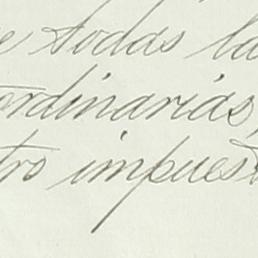 e todas la
ordinarias,
tro impuest